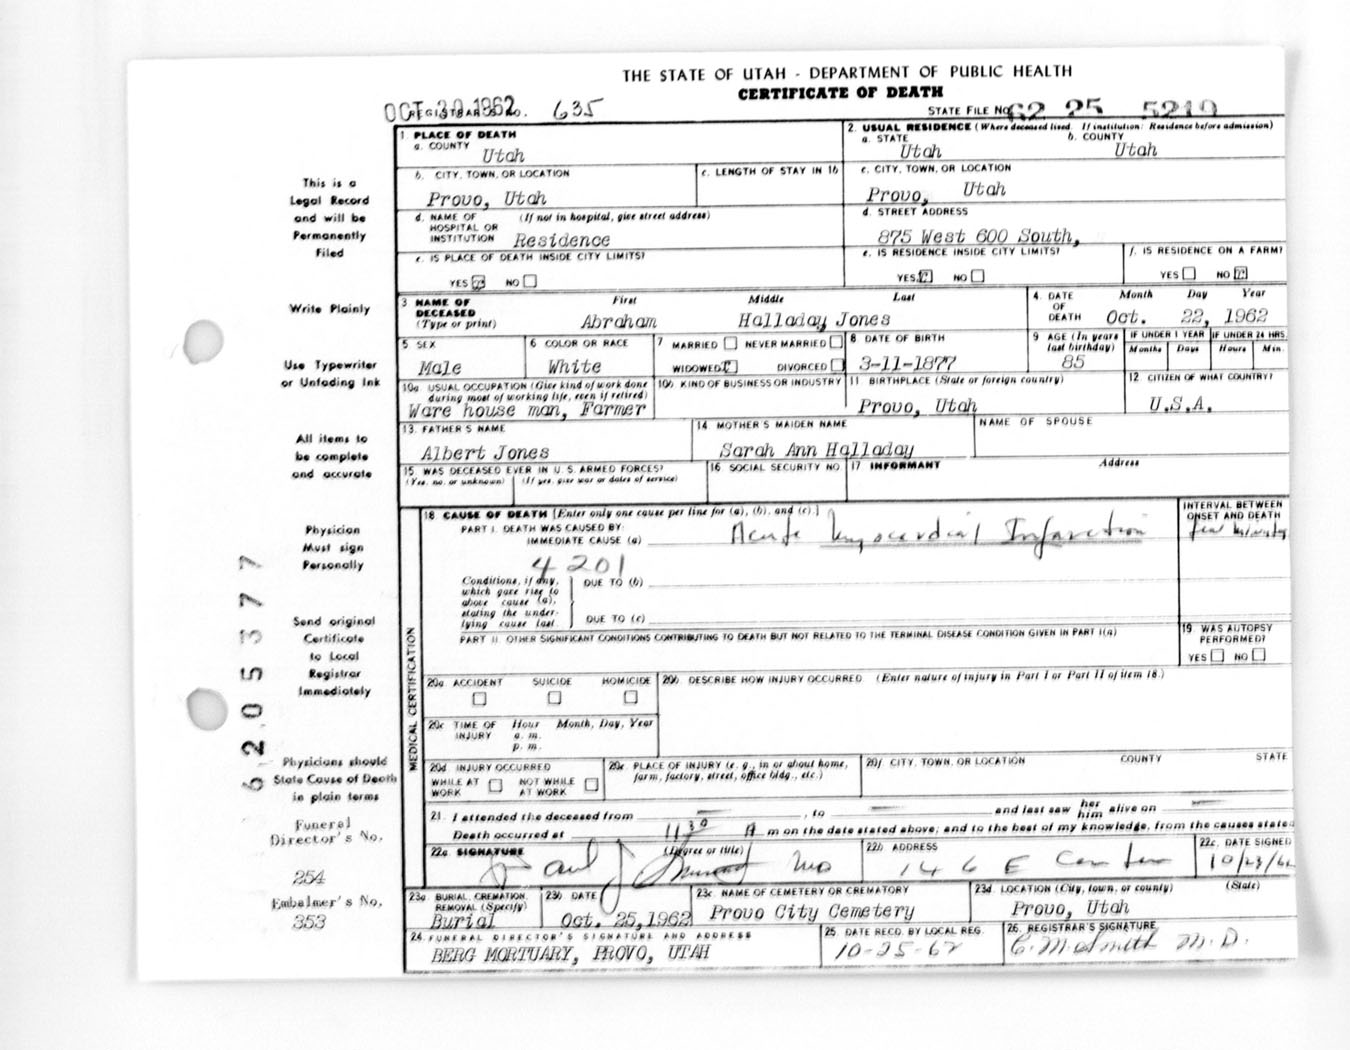 THE STATE OF UTAH - DEPARTMENT OF PUBLIC HEALTH
CERTIFICATE OF DEATH
OCT 30 1962
REGISTRAR'S NO. 635
STATE FILE NO. 62 25 5210
1. PLACE OF DEATH
a. COUNTY
Utah
2. USUAL RESIDENCE (Where deceased lived. If institution: Residence before admission)
a. STATE b. COUNTY
Utah Utah
b. CITY, TOWN, OR LOCATION
Provo, Utah
c. LENGTH OF STAY IN 1b
c. CITY, TOWN, OR LOCATION
Provo, Utah
d. NAME OF HOSPITAL OR INSTITUTION (If not in hospital, give street address)
Residence
d. STREET ADDRESS
875 West 600 South,
e. IS PLACE OF DEATH INSIDE CITY LIMITS?
YES NO
e. IS RESIDENCE INSIDE CITY LIMITS?
YES NO
f. IS RESIDENCE ON A FARM?
YES NO
3 NAME OF DECEASED (Type or print)
First Middle Last
Abraham Halladay Jones
4. DATE OF DEATH Month Day Year
Oct. 22, 1962
5 SEX
Male
6 COLOR OR RACE
White
7 MARRIED NEVER MARRIED
WIDOWED DIVORCED
8 DATE OF BIRTH
3-11-1877
9 AGE (In years last birthday)
85
IF UNDER 1 YEAR
Months Days
IF UNDER 24 HRS.
Hours Min.
10a USUAL OCCUPATION (Give kind of work done during most of working life, even if retired)
Ware house man, Farmer
10b KIND OF BUSINESS OR INDUSTRY
11 BIRTHPLACE (State or foreign country)
Provo, Utah
12 CITIZEN OF WHAT COUNTRY?
U.S.A.
13. FATHER'S NAME
Albert Jones
14 MOTHER'S MAIDEN NAME
Sarah Ann Halladay
NAME OF SPOUSE
15. WAS DECEASED EVER IN U.S. ARMED FORCES?
(Yes, no, or unknown) (If yes, give war or dates of service)
16 SOCIAL SECURITY NO
17 INFORMANT Address
MEDICAL CERTIFICATION
18 CAUSE OF DEATH [Enter only one cause per line for (a), (b), and (c).]
PART I. DEATH WAS CAUSED BY:
IMMEDIATE CAUSE (a) Acute Myocardial Infarction
INTERVAL BETWEEN ONSET AND DEATH
few
4201
Conditions, if any, which gave rise to above cause (a), stating the underlying cause last.
DUE TO (b)
DUE TO (c)
PART II. OTHER SIGNIFICANT CONDITIONS CONTRIBUTING TO DEATH BUT NOT RELATED TO THE TERMINAL DISEASE CONDITION GIVEN IN PART I(a)
19 WAS AUTOPSY PERFORMED?
YES NO
20a ACCIDENT SUICIDE HOMICIDE
20b. DESCRIBE HOW INJURY OCCURRED (Enter nature of injury in Part I or Part II of item 18.)
20c TIME OF INJURY Hour Month, Day, Year
a. m.
p. m.
20d INJURY OCCURRED
WHILE AT WORK NOT WHILE AT WORK
20e. PLACE OF INJURY (e. g., in or about home, farm, factory, street, office bldg., etc.)
20f CITY, TOWN, OR LOCATION COUNTY STATE
21. I attended the deceased from , to and last saw her him alive on
Death occurred at 11 30 A m on the date stated above; and to the best of my knowledge, from the causes stated
22a SIGNATURE (Degree or title)
Paul J MD
22b ADDRESS
146 E Center
22c. DATE SIGNED
10/23/62
23a BURIAL, CREMATION, REMOVAL (Specify)
Burial
23b DATE
Oct. 25, 1962
23c NAME OF CEMETERY OR CREMATORY
Provo City Cemetery
23d LOCATION (City, town, or county) (State)
Provo, Utah
24 FUNERAL DIRECTOR'S SIGNATURE AND ADDRESS
BERG MORTUARY, PROVO, UTAH
25 DATE RECD. BY LOCAL REG.
10-25-62
26. REGISTRAR'S SIGNATURE
C. M. Smith M.D.
This is a
Legal Record
and will be
Permanently
Filed
Write Plainly
Use Typewriter
or Unfading Ink
All items to
be complete
and accurate
Physician
Must sign
Personally
Send original
Certificate
to Local
Registrar
Immediately
Physicians should
State Cause of Death
in plain terms
Funeral
Director's No.
254
Embalmer's No.
353
6205377